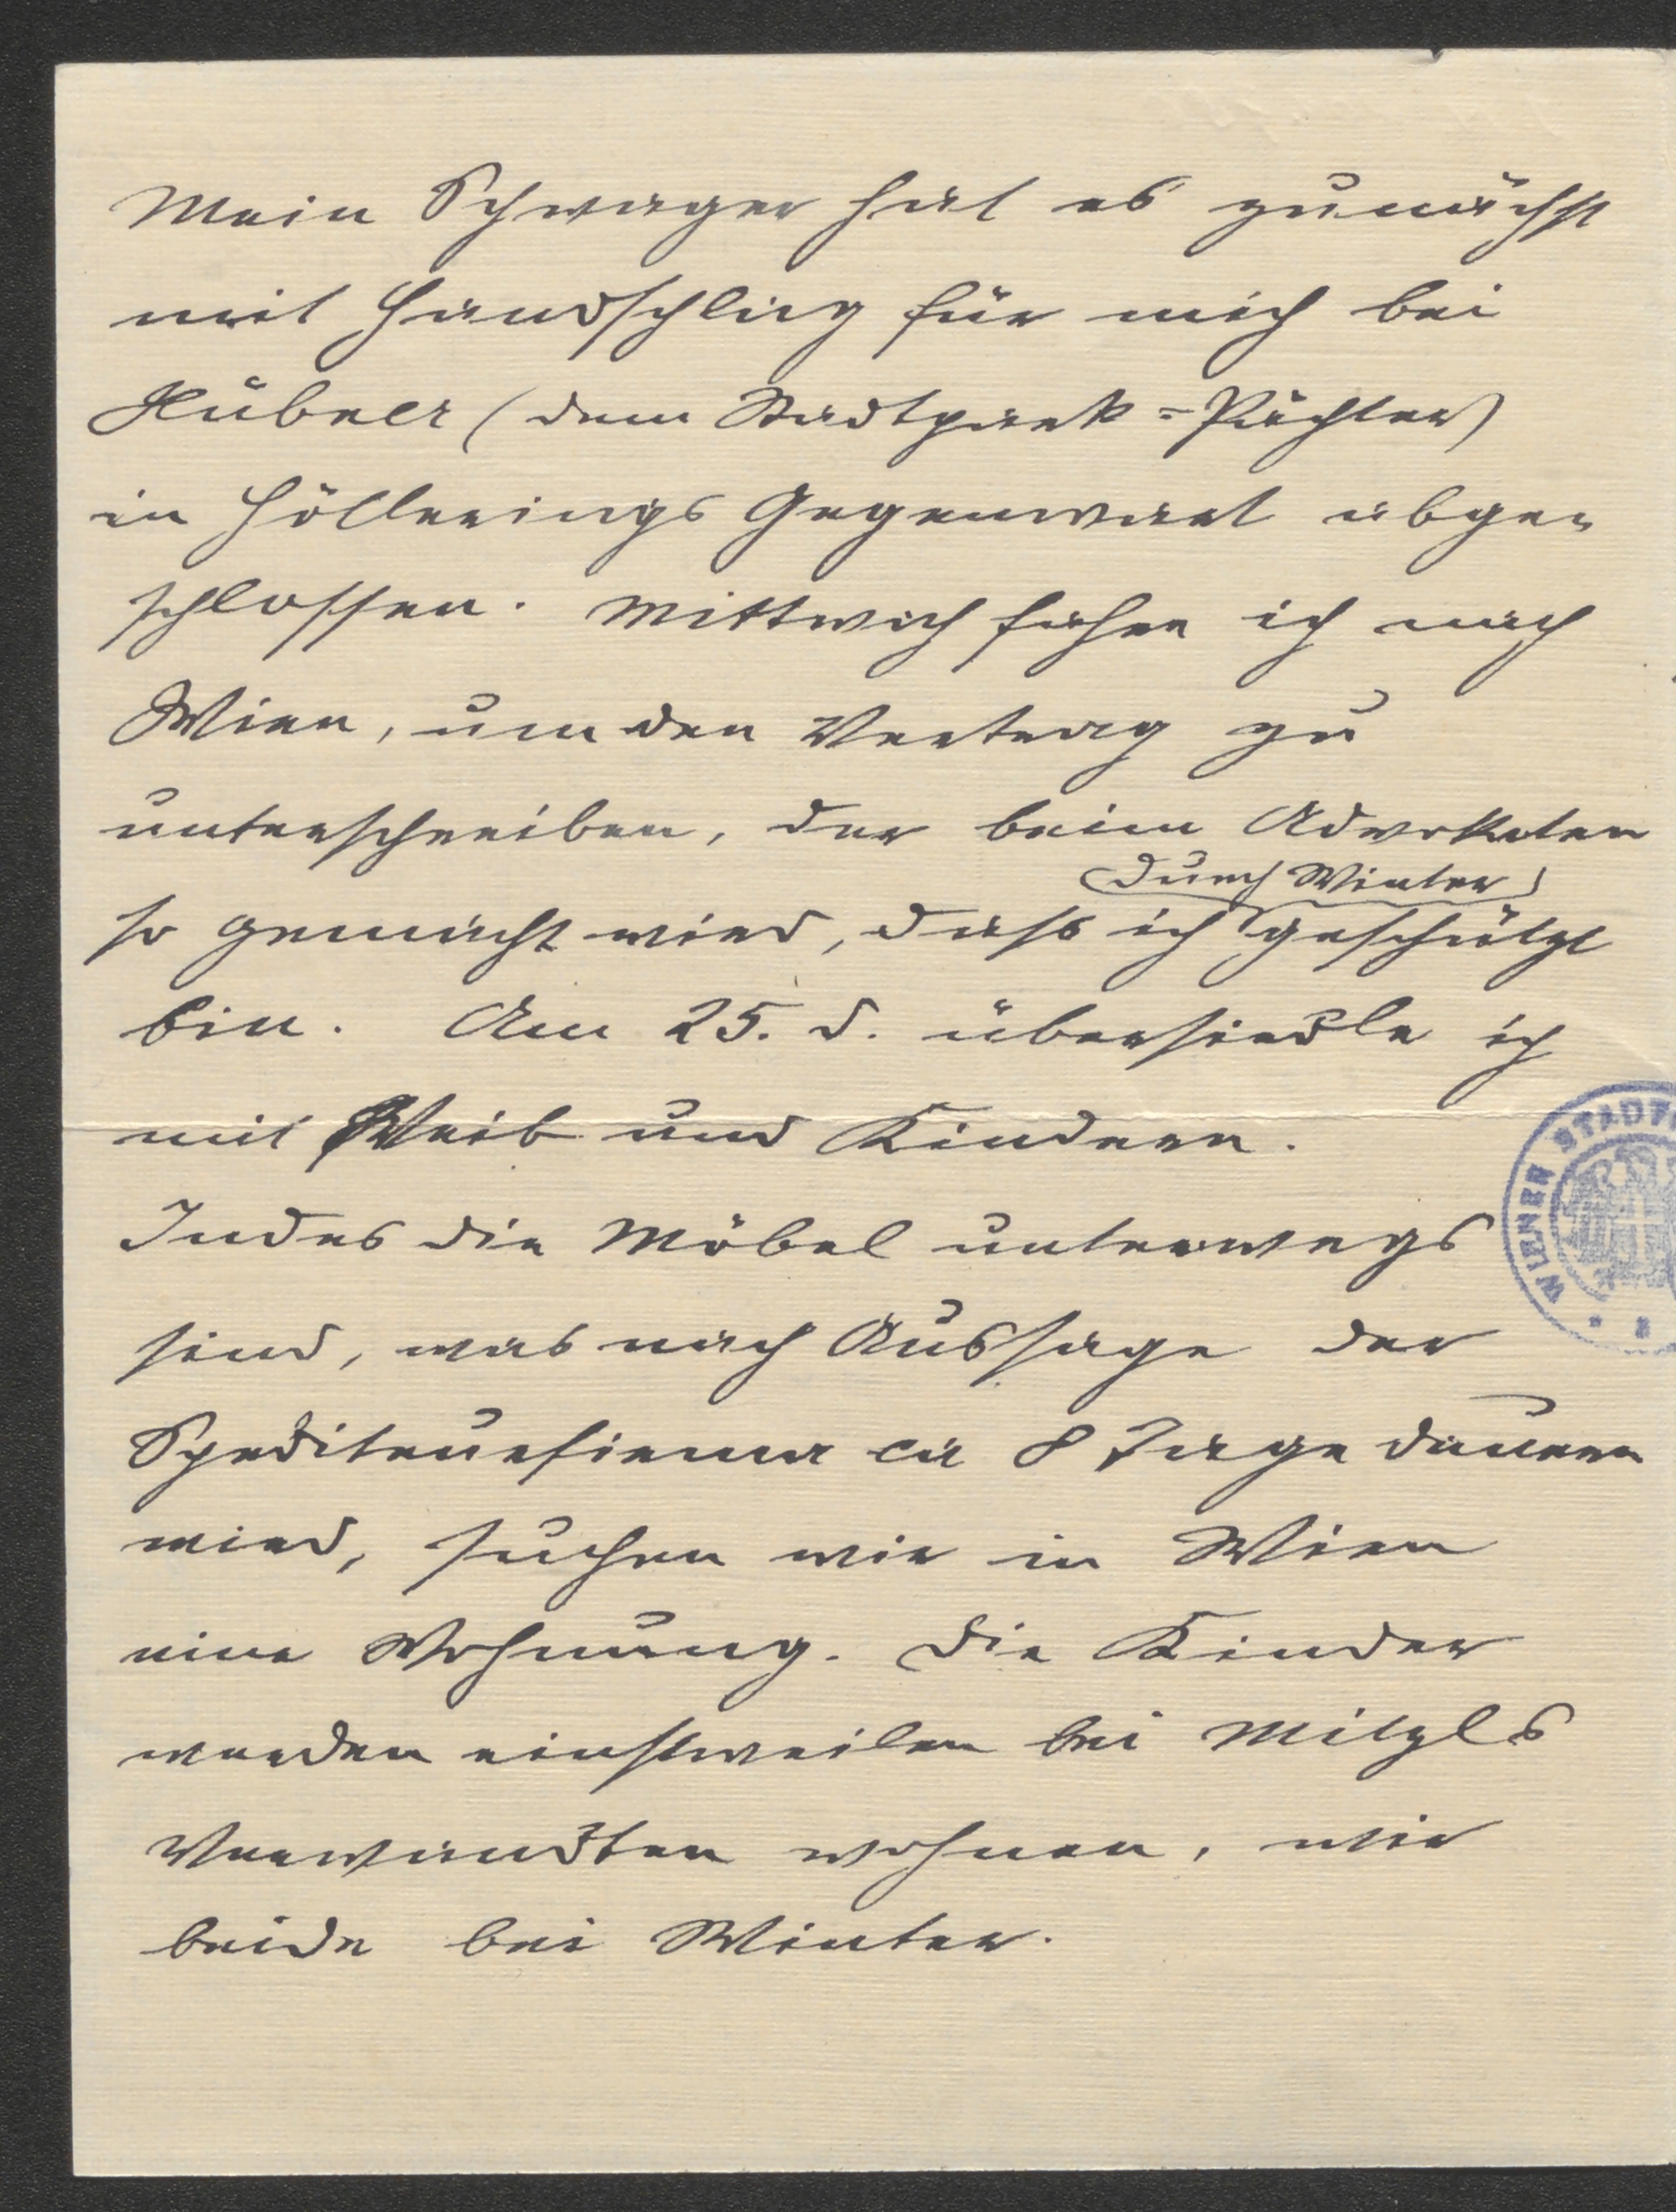 Mein Schwager hat es zunächst
mit Handschlag für mich bei
Hübner (dem Stadtpark=Pächter)
in Höllerings Gegenwart abge-
schlossen. Mittwoch fahre ich nach
Wien, um den Vertrag zu
unterschreiben, der beim Advokaten
(durch Winter)
so gemacht wird, dass ich geschützt
bin. Am 25. d. übersiedle ich
mit Weib und Kindern.
Indes die Möbel unterwegs
sind, was nach Aussage der
Spediteurfirma ca 8 Tage dauern
wird, suchen wir in Wien
eine Wohnung. Die Kinder
werden einstweilen bei Mitzls
Verwandten wohnen, wir
beide bei Winter.
WIENER STADT